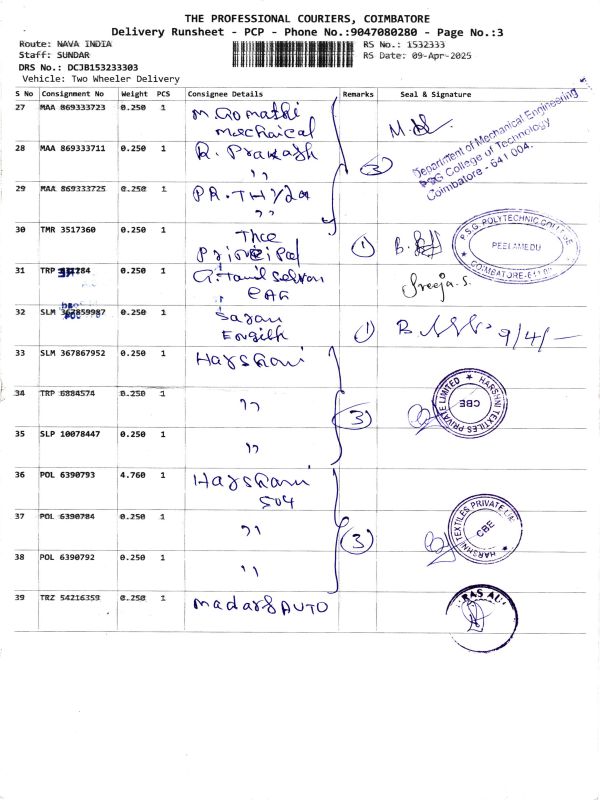 THE PROFESSIONAL COURIERS, COIMBATORE
Delivery Runsheet - PCP - Phone No.:9047080280 - Page No.:3
Route: NAVA INDIA
RS No.: 1532333
Staff: SUNDAR
RS Date: 09-Apr-2025
DRS No.: DCJB153233303
Vehicle: Two Wheeler Delivery
S No Consignment No Weight PCS Consignee Details Remarks Seal & Signature
27 MAA 869333723 0.250 1 M. Gomathi
Mechaical
28 MAA 869333711 0.250 1 R. Prakash
,,
(3)
Department of Mechanical Engineering
P S G College of Technology
Coimbatore - 641 004.
29 MAA 869333725 0.250 1
,,
30 TMR 3517360 0.250 1 The
Principal
(1)
P.S.G. POLYTECHNIC COLLEGE
PEELAMEDU
31 TRP 284 0.250 1 G. Tamil Selvan
Sreeja.S.
32 SLM 367859987 0.250 1 Sagan
English
(1) 9/4/-
33 SLM 367867952 0.250 1 Harshani
34 TRP 6884574 0.250 1 ,,
(3)
HARSHNI TEXTILES PRIVATE LIMITED
CBE
35 SLP 10078447 0.250 1 ,,
36 POL 6390793 4.760 1 Harshani
504
37 POL 6390784 0.250 1 ,,
(3)
HARSHNI TEXTILES PRIVATE
CBE
38 POL 6390792 0.250 1 ,,
39 TRZ 54216359 0.250 1 Madars AUTO